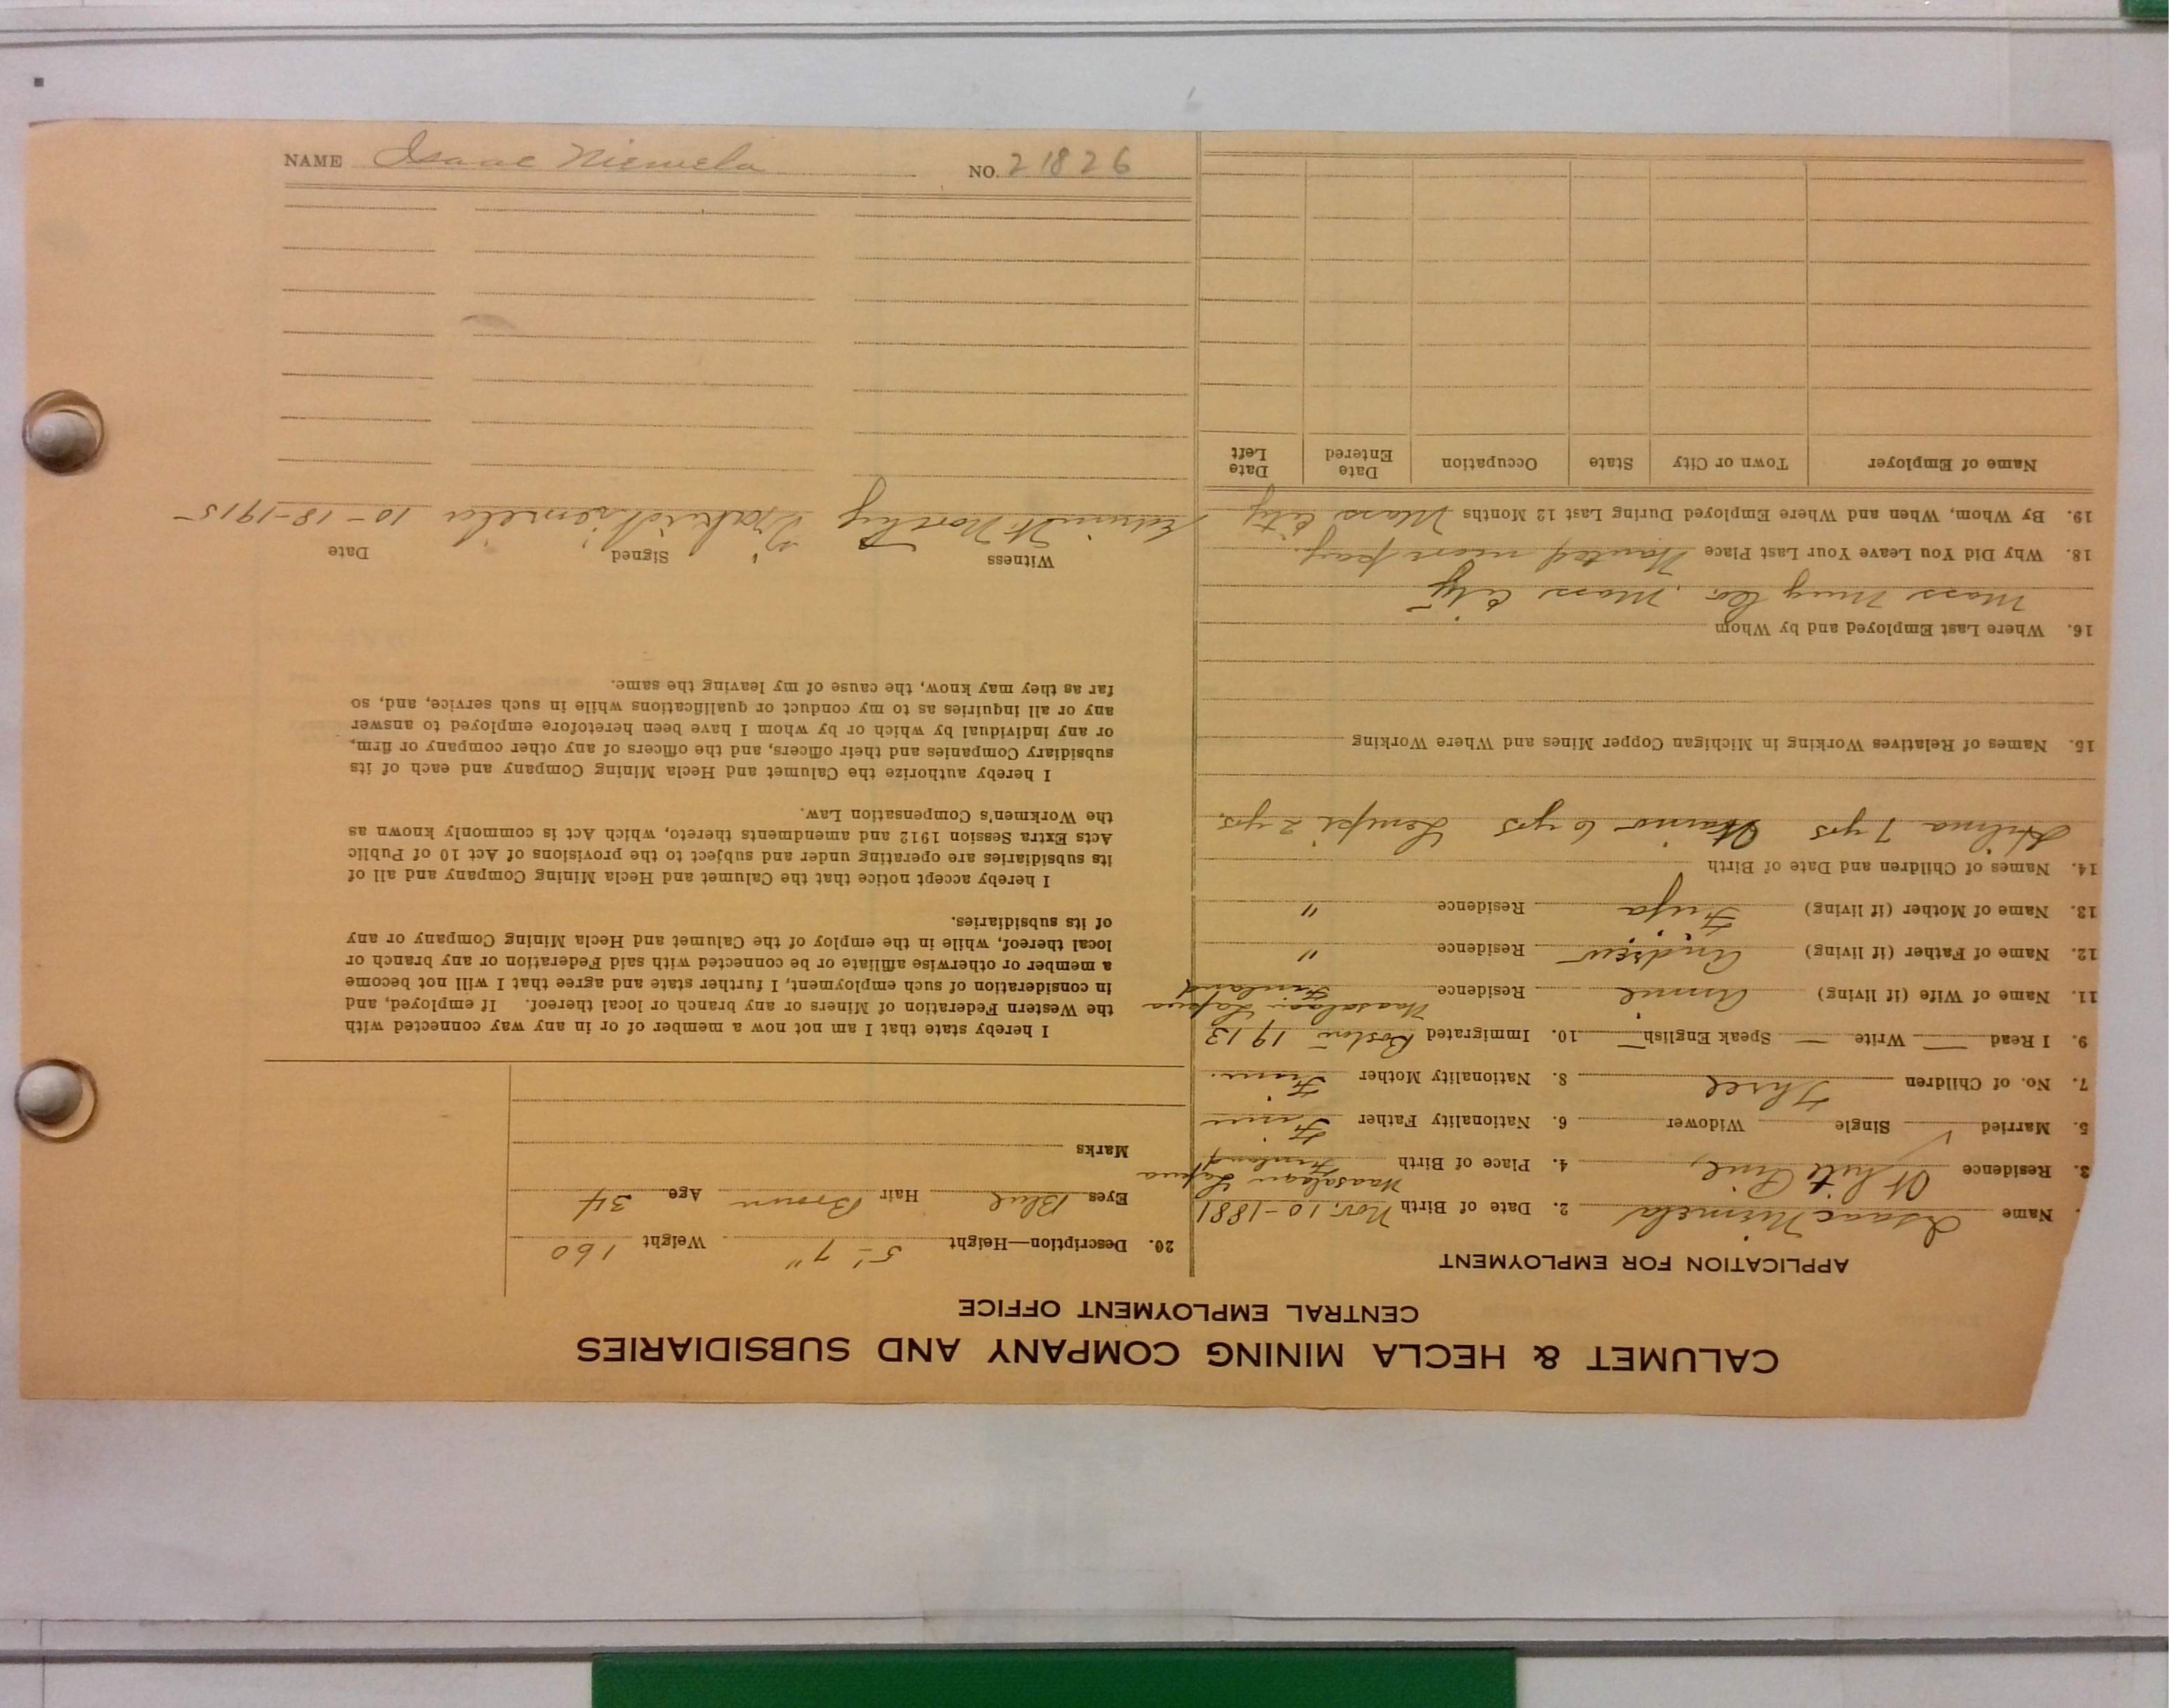 CALUMET & HECLA MINING COMPANY AND SUBSIDIARIES
CENTRAL EMPLOYMENT OFFICE
APPLICATION FOR EMPLOYMENT
. Name Isaac Niemela 2. Date of Birth Nov. 10-1881
3. Residence White Pine, 4. Place of Birth Waasalaani Lapua Finland
5. Married ✓ Single Widower 6. Nationality Father Finn
7. No. of Children Three 8. Nationality Mother Finn.
9. I Read — Write — Speak English — 10. Immigrated Boston 1913
11. Name of Wife (if living) Residence Waasalaani Lapua Finland
12. Name of Father (if living) Andrew Residence "
13. Name of Mother (if living) Residence "
14. Names of Children and Date of Birth
Hilma 7 yrs Waino 6 yrs Lempi 2 yrs.
15. Names of Relatives Working in Michigan Copper Mines and Where Working
16. Where Last Employed and by Whom
Mass Mng Co. Mass City
18. Why Did You Leave Your Last Place Wanted more pay.
19. By Whom, When and Where Employed During Last 12 Months Mass City
Name of Employer Town or City State Occupation Date Entered Date Left
20. Description—Height 5'-7" Weight 160
Eyes Blue Hair Brown Age 34
Marks
I hereby state that I am not now a member of or in any way connected with
the Western Federation of Miners or any branch or local thereof. If employed, and
in consideration of such employment, I further state and agree that I will not become
a member or otherwise affiliate or be connected with said Federation or any branch or
local thereof, while in the employ of the Calumet and Hecla Mining Company or any
of its subsidiaries.
I hereby accept notice that the Calumet and Hecla Mining Company and all of
its subsidiaries are operating under and subject to the provisions of Act 10 of Public
Acts Extra Session 1912 and amendments thereto, which Act is commonly known as
the Workmen's Compensation Law.
I hereby authorize the Calumet and Hecla Mining Company and each of its
subsidiary Companies and their officers, and the officers of any other company or firm,
or any individual by which or by whom I have been heretofore employed to answer
any or all inquiries as to my conduct or qualifications while in such service, and, so
far as they may know, the cause of my leaving the same.
Witness Signed Date
Edwin W. Northey Niemela 10-18-1915
NAME Isaac Niemela NO. 21826